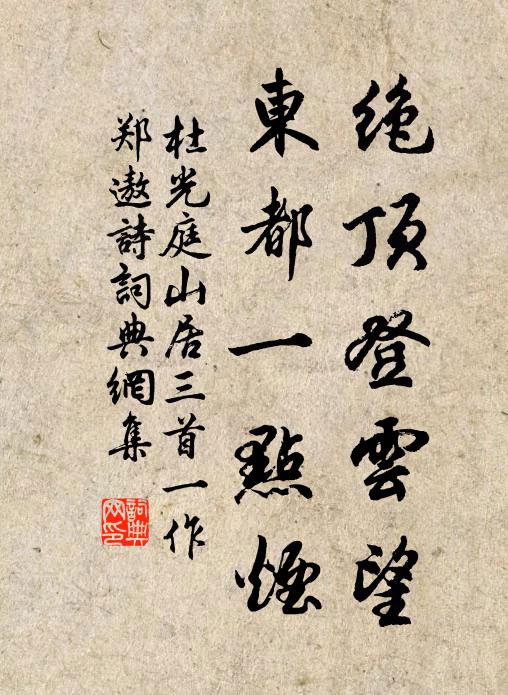 絶顶登雲望
東都一點煙
杜光庭山居三首一作
郑遨詩詞典網集
詞典
网印